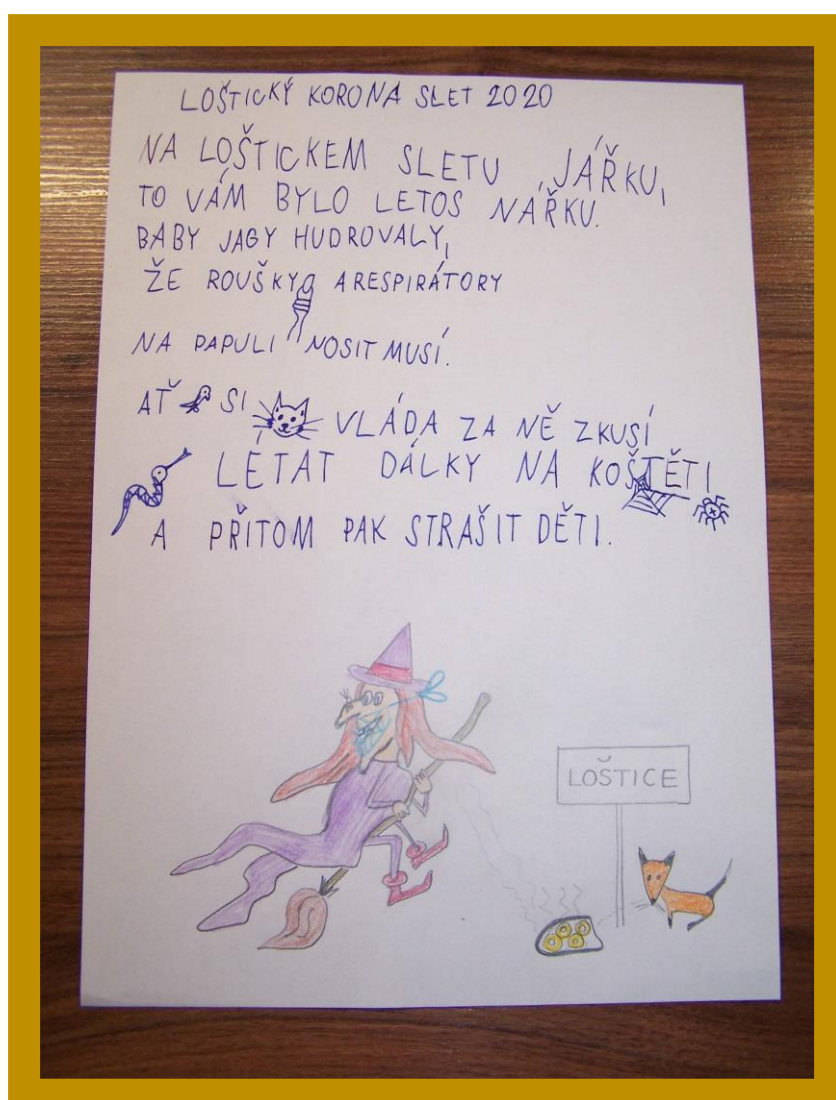 LOŠTICKÝ KORONA SLET 2020
NA LOŠTICKEM SLETU, JÁŘKU,
TO VÁM BYLO LETOS NÁŘKU.
BABY JAGY HUDROVALY,
ŽE ROUŠKY A RESPIRÁTORY
NA PAPULI NOSIT MUSÍ.
AŤ SI VLÁDA ZA NĚ ZKUSÍ
LÉTAT DÁLKY NA KOŠTĚTI
A PŘITOM PAK STRAŠIT DĚTI.
LOŠTICE